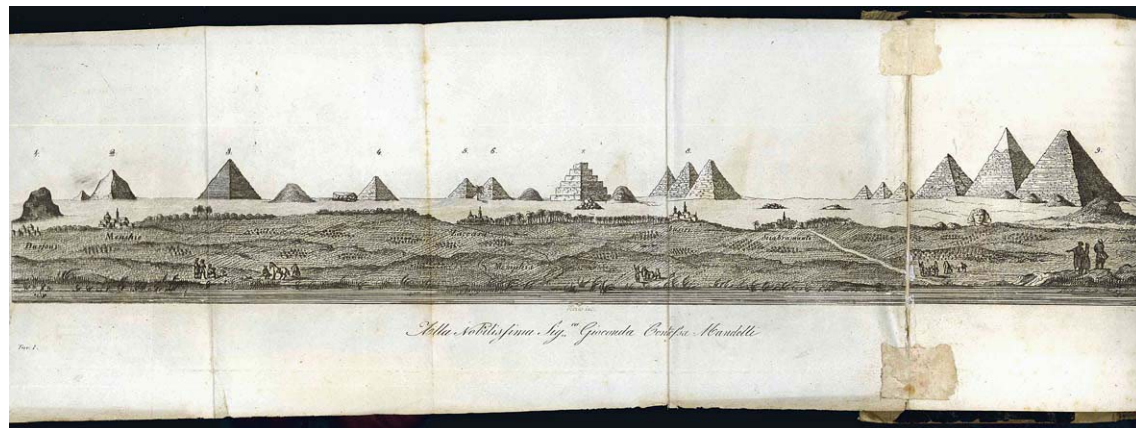 1. 2. 3. 4. 5. 6. 8. 9.
Dassur Menshie Saccara
Memphis
Alla Nobilissima Sig.ra Gioconda Contessa Mandelli
Tav. I.